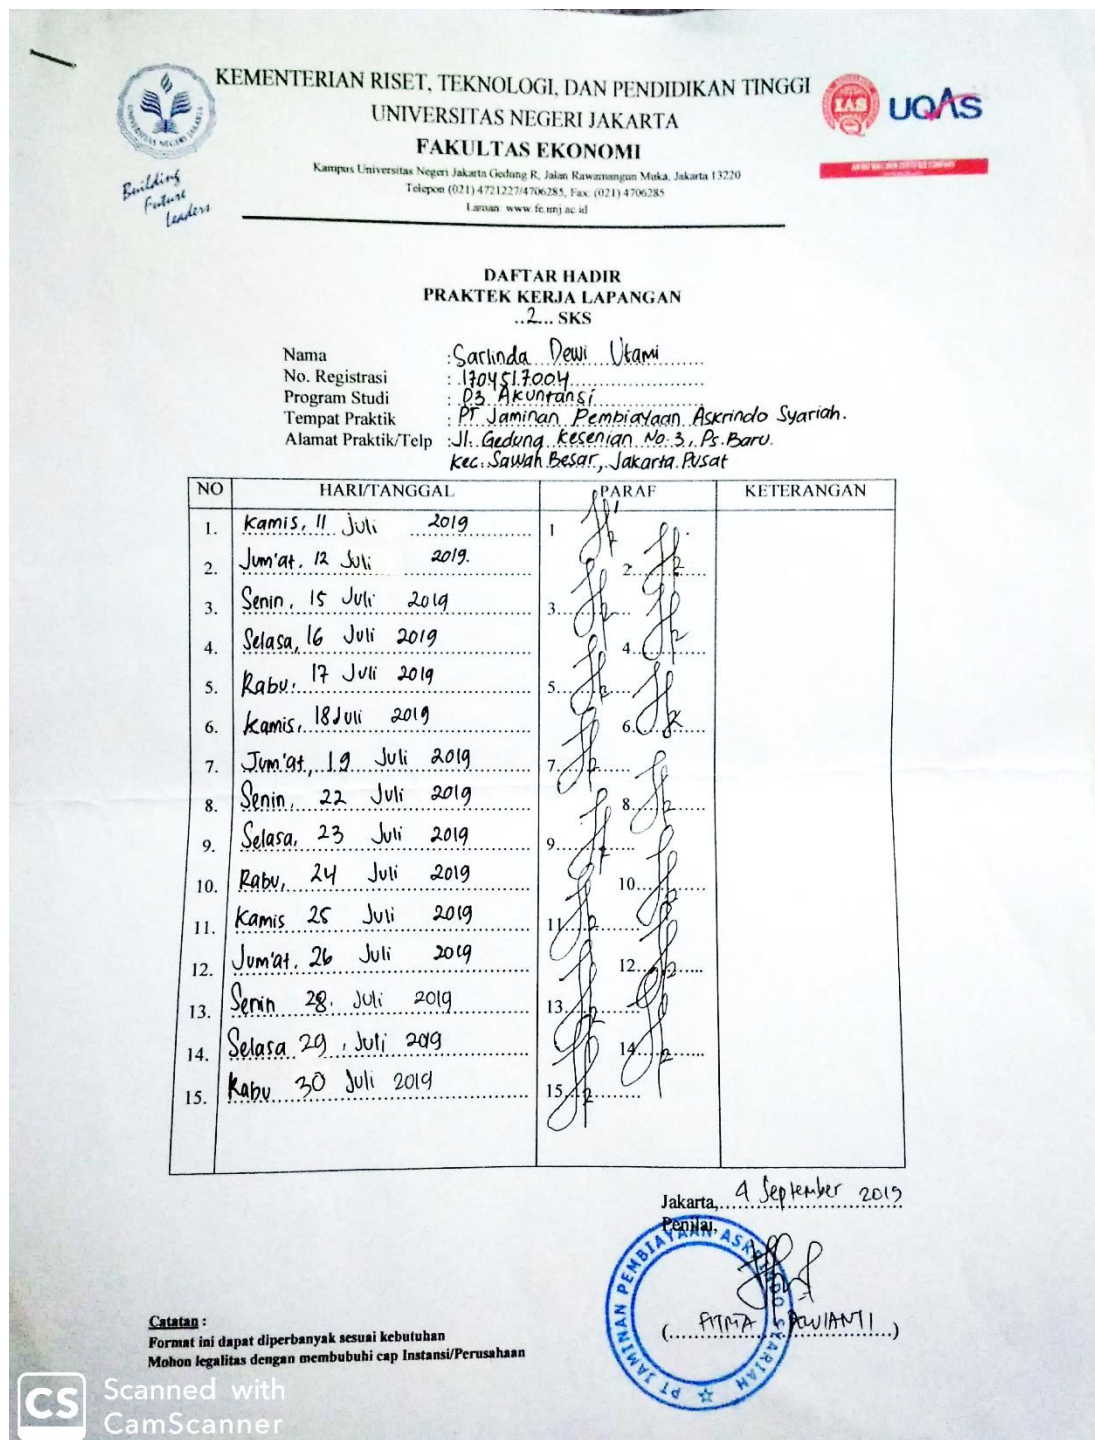 KEMENTERIAN RISET, TEKNOLOGI, DAN PENDIDIKAN TINGGI
UNIVERSITAS NEGERI JAKARTA
FAKULTAS EKONOMI
Kampus Universitas Negeri Jakarta Gedung R, Jalan Rawamangun Muka, Jakarta 13220
Telepon (021) 4721227/4706285, Fax: (021) 4706285
Laman: www.fe.unj.ac.id
UNIVERSITAS NEGERI JAKARTA
Building
Future
Leaders
IAS
UQAS
DAFTAR HADIR
PRAKTEK KERJA LAPANGAN
..2... SKS
Nama : Sarlinda Dewi Utami
No. Registrasi : 1704517004
Program Studi : D3 Akuntansi
Tempat Praktik : PT Jaminan Pembiayaan Askrindo Syariah.
Alamat Praktik/Telp : Jl. Gedung Kesenian No. 3, Ps. Baru.
Kec. Sawah Besar, Jakarta Pusat
NO HARI/TANGGAL PARAF KETERANGAN
1. Kamis, 11 Juli 2019 1
2. Jum'at, 12 Juli 2019. 2
3. Senin, 15 Juli 2019 3
4. Selasa, 16 Juli 2019 4
5. Rabu, 17 Juli 2019 5
6. Kamis, 18 Juli 2019 6
7. Jum'at, 19 Juli 2019 7
8. Senin, 22 Juli 2019 8
9. Selasa, 23 Juli 2019 9
10. Rabu, 24 Juli 2019 10
11. Kamis 25 Juli 2019 11
12. Jum'at, 26 Juli 2019 12
13. Senin 28. Juli 2019 13
14. Selasa 29, Juli 2019 14
15. Rabu 30 Juli 2019 15
Jakarta, 4 September 2019
Penilai,
PT JAMINAN PEMBIAYAAN ASKRINDO SYARIAH
(FITRIA DEWIANTI)
Catatan :
Format ini dapat diperbanyak sesuai kebutuhan
Mohon legalitas dengan membubuhi cap Instansi/Perusahaan
CS Scanned with
CamScanner